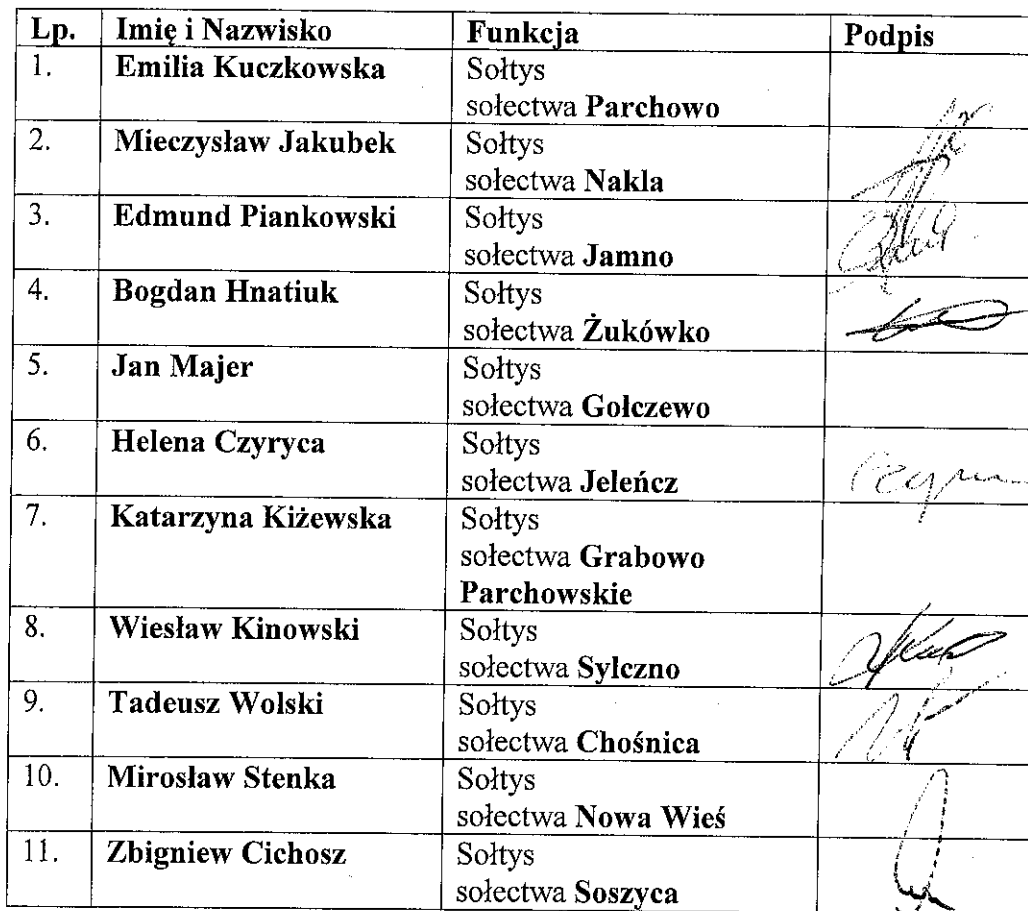 Lp. Imię i Nazwisko Funkcja Podpis
1. Emilia Kuczkowska Sołtys
sołectwa Parchowo
2. Mieczysław Jakubek Sołtys
sołectwa Nakla
3. Edmund Piankowski Sołtys
sołectwa Jamno
4. Bogdan Hnatiuk Sołtys
sołectwa Żukówko
5. Jan Majer Sołtys
sołectwa Gołczewo
6. Helena Czyryca Sołtys
sołectwa Jeleńcz
7. Katarzyna Kiżewska Sołtys
sołectwa Grabowo
Parchowskie
8. Wiesław Kinowski Sołtys
sołectwa Sylczno
9. Tadeusz Wolski Sołtys
sołectwa Chośnica
10. Mirosław Stenka Sołtys
sołectwa Nowa Wieś
11. Zbigniew Cichosz Sołtys
sołectwa Soszyca